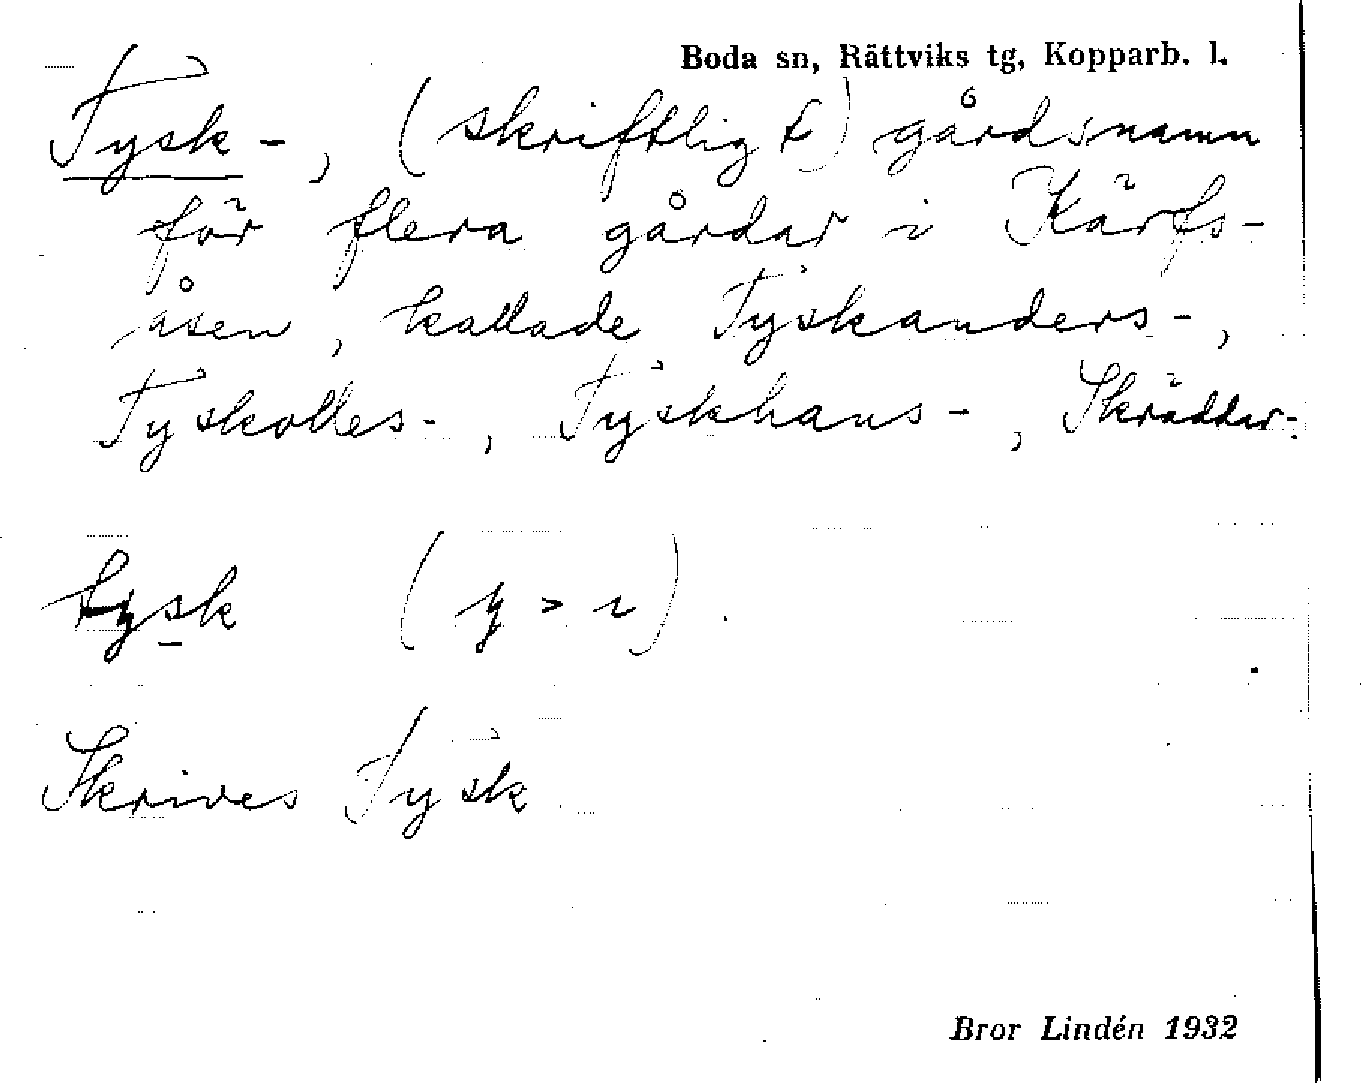 Boda sn, Rättviks tg, Kopparb. l.
Tysk-, (skriftligt) gårdsnamn
för flera gårdar i Kärfs-
åsen, kallade Tyskanders-,
Tyskolles-, Tyskhans-, Skräddar-.
tysk (y > i).
Skrives Tysk
Bror Lindén 1932